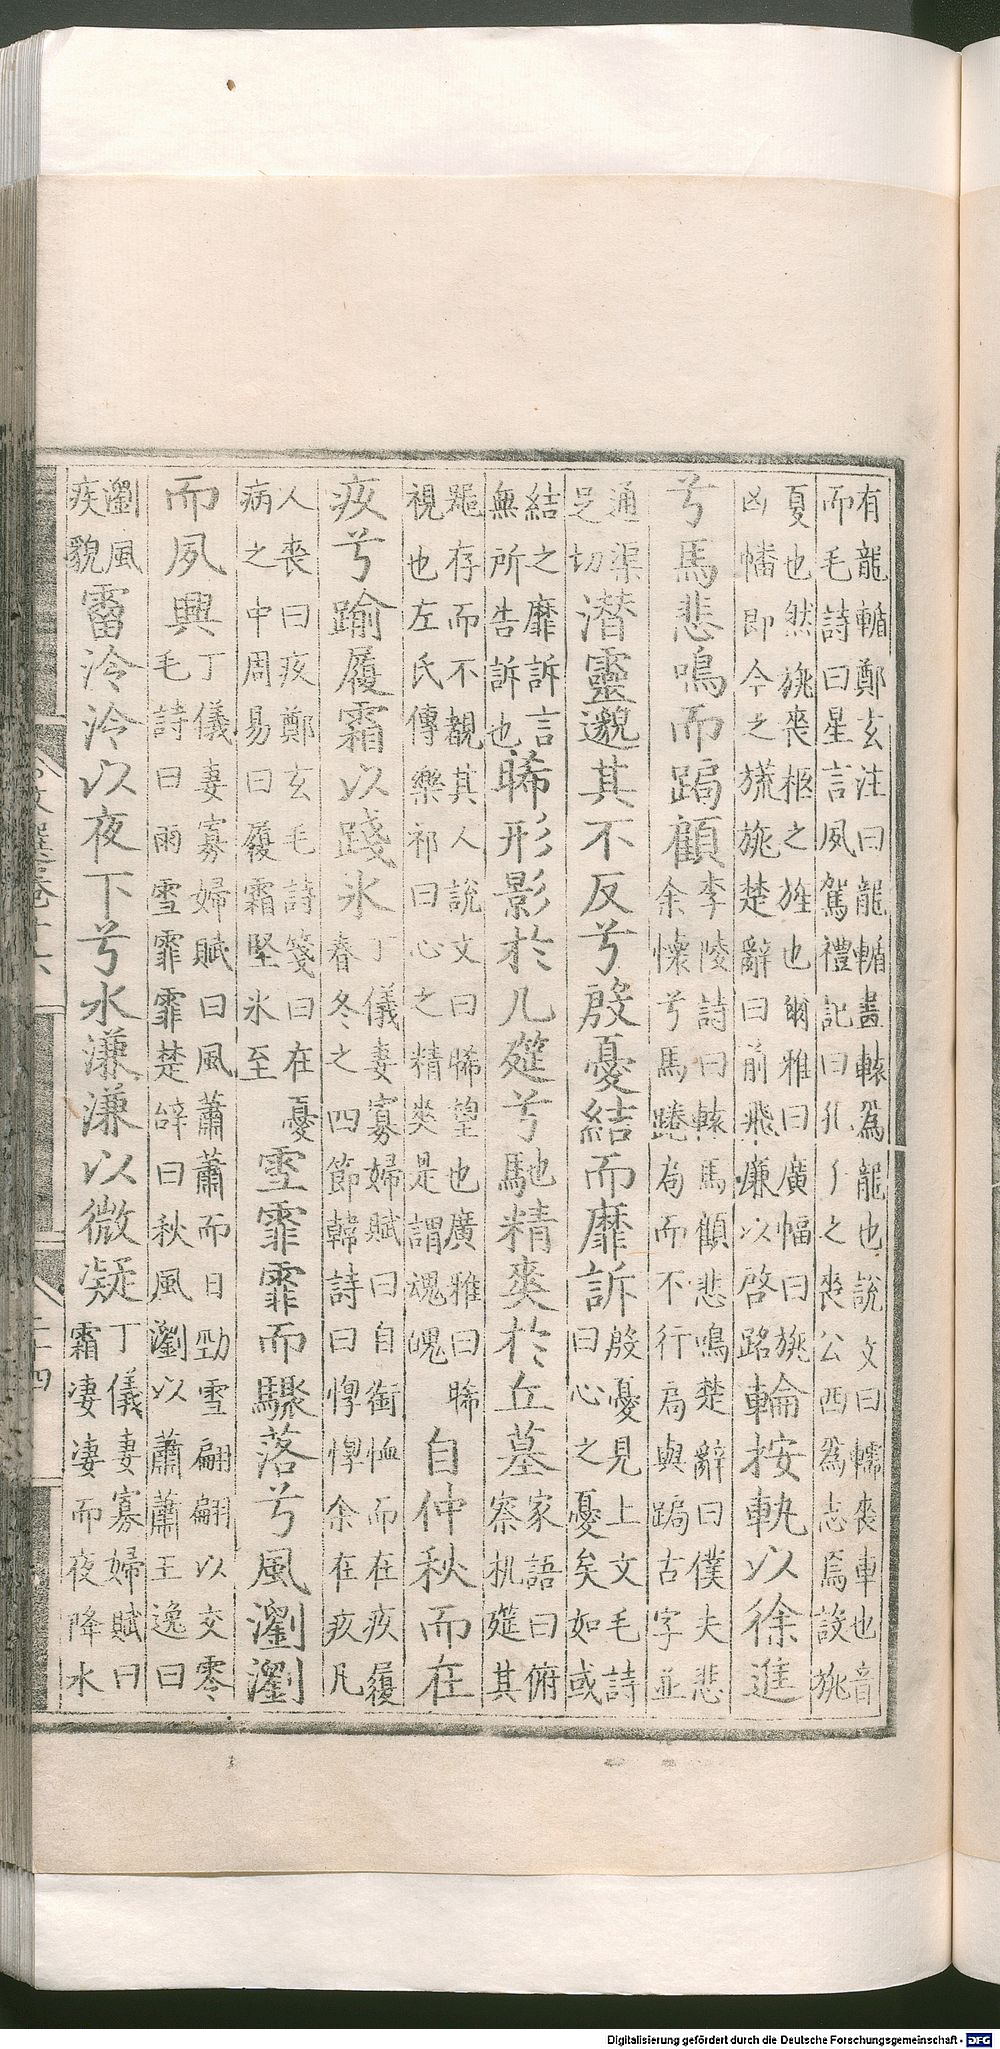 有龍輴鄭玄注曰龍輴畫轅爲龍也說文曰輀喪車也音
而毛詩曰星言夙駕禮記曰孔子之喪公西爲志焉設旐
夏也然旐喪柩之旌也爾雅曰廣幅曰旐
凶幡即今之旒旐楚辭曰前飛廉以啓路
輪按軌以徐進
兮馬悲鳴而跼顧
李陵詩曰轅馬顧悲鳴楚辭曰僕夫悲
余懷兮馬蹉局而不行局與跼古字並
通渠
足切
潜靈邈其不反兮殷憂結而靡訴
殷憂見上文毛詩
曰心之憂矣如或
結之靡訴言
無所告訴也
睎形影於几筵兮馳精爽於丘墓
家語曰俯
察机筵其
噐存而不覩其人說文曰睎望也廣雅曰睎
視也左氏傳樂祁曰心之精爽是謂魂魄
自仲秋而在
疚兮踰履霜以踐氷
丁儀妻寡婦賦曰自銜恤而在疚履
春冬之四節韓詩曰惸惸余在疚凡
人喪曰疚鄭玄毛詩箋曰在憂
病之中周易曰履霜堅氷至
雪霏霏而驟落兮風瀏瀏
而夙興
丁儀妻寡婦賦曰風蕭蕭而日勁雪翩翩以交零
毛詩曰雨雪霏霏楚辝曰秋風瀏以蕭蕭王逸曰
瀏風
疾貌
霤泠泠以夜下兮水溓溓以微凝
丁儀妻寡婦賦曰
霜凄凄而夜降水
二十四
Digitalisierung gefördert durch die Deutsche Forschungsgemeinschaft - DFG